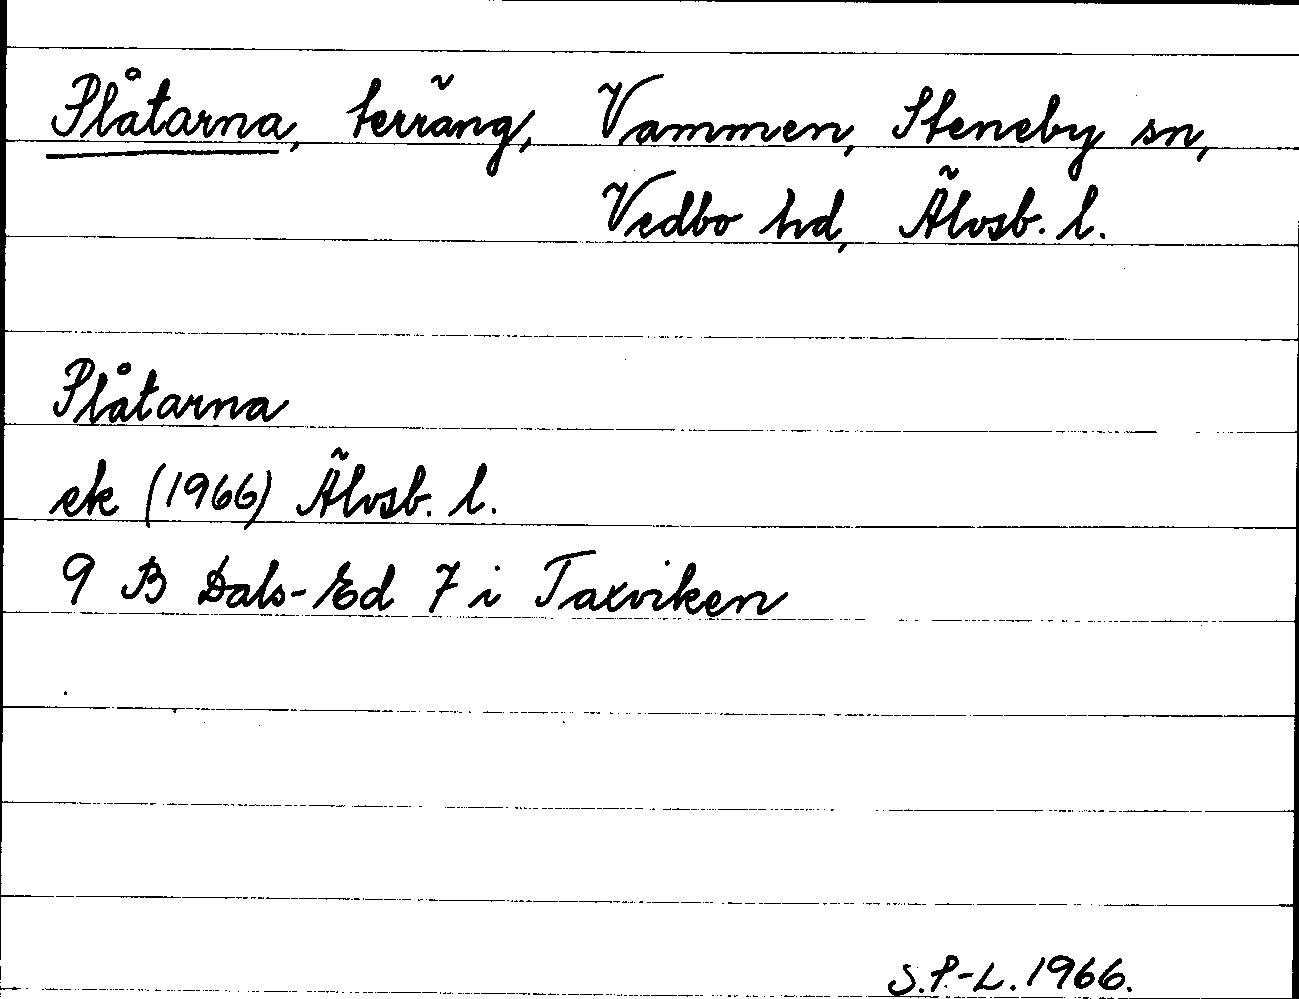 Plåtarna, terräng, Vammen, Steneby sn,
Vedbo hd, Älvsb. l.
Plåtarna
ek (1966) Älvsb. l.
9 B Dals-Ed 7 i Taxviken
S.P.-L. 1966.